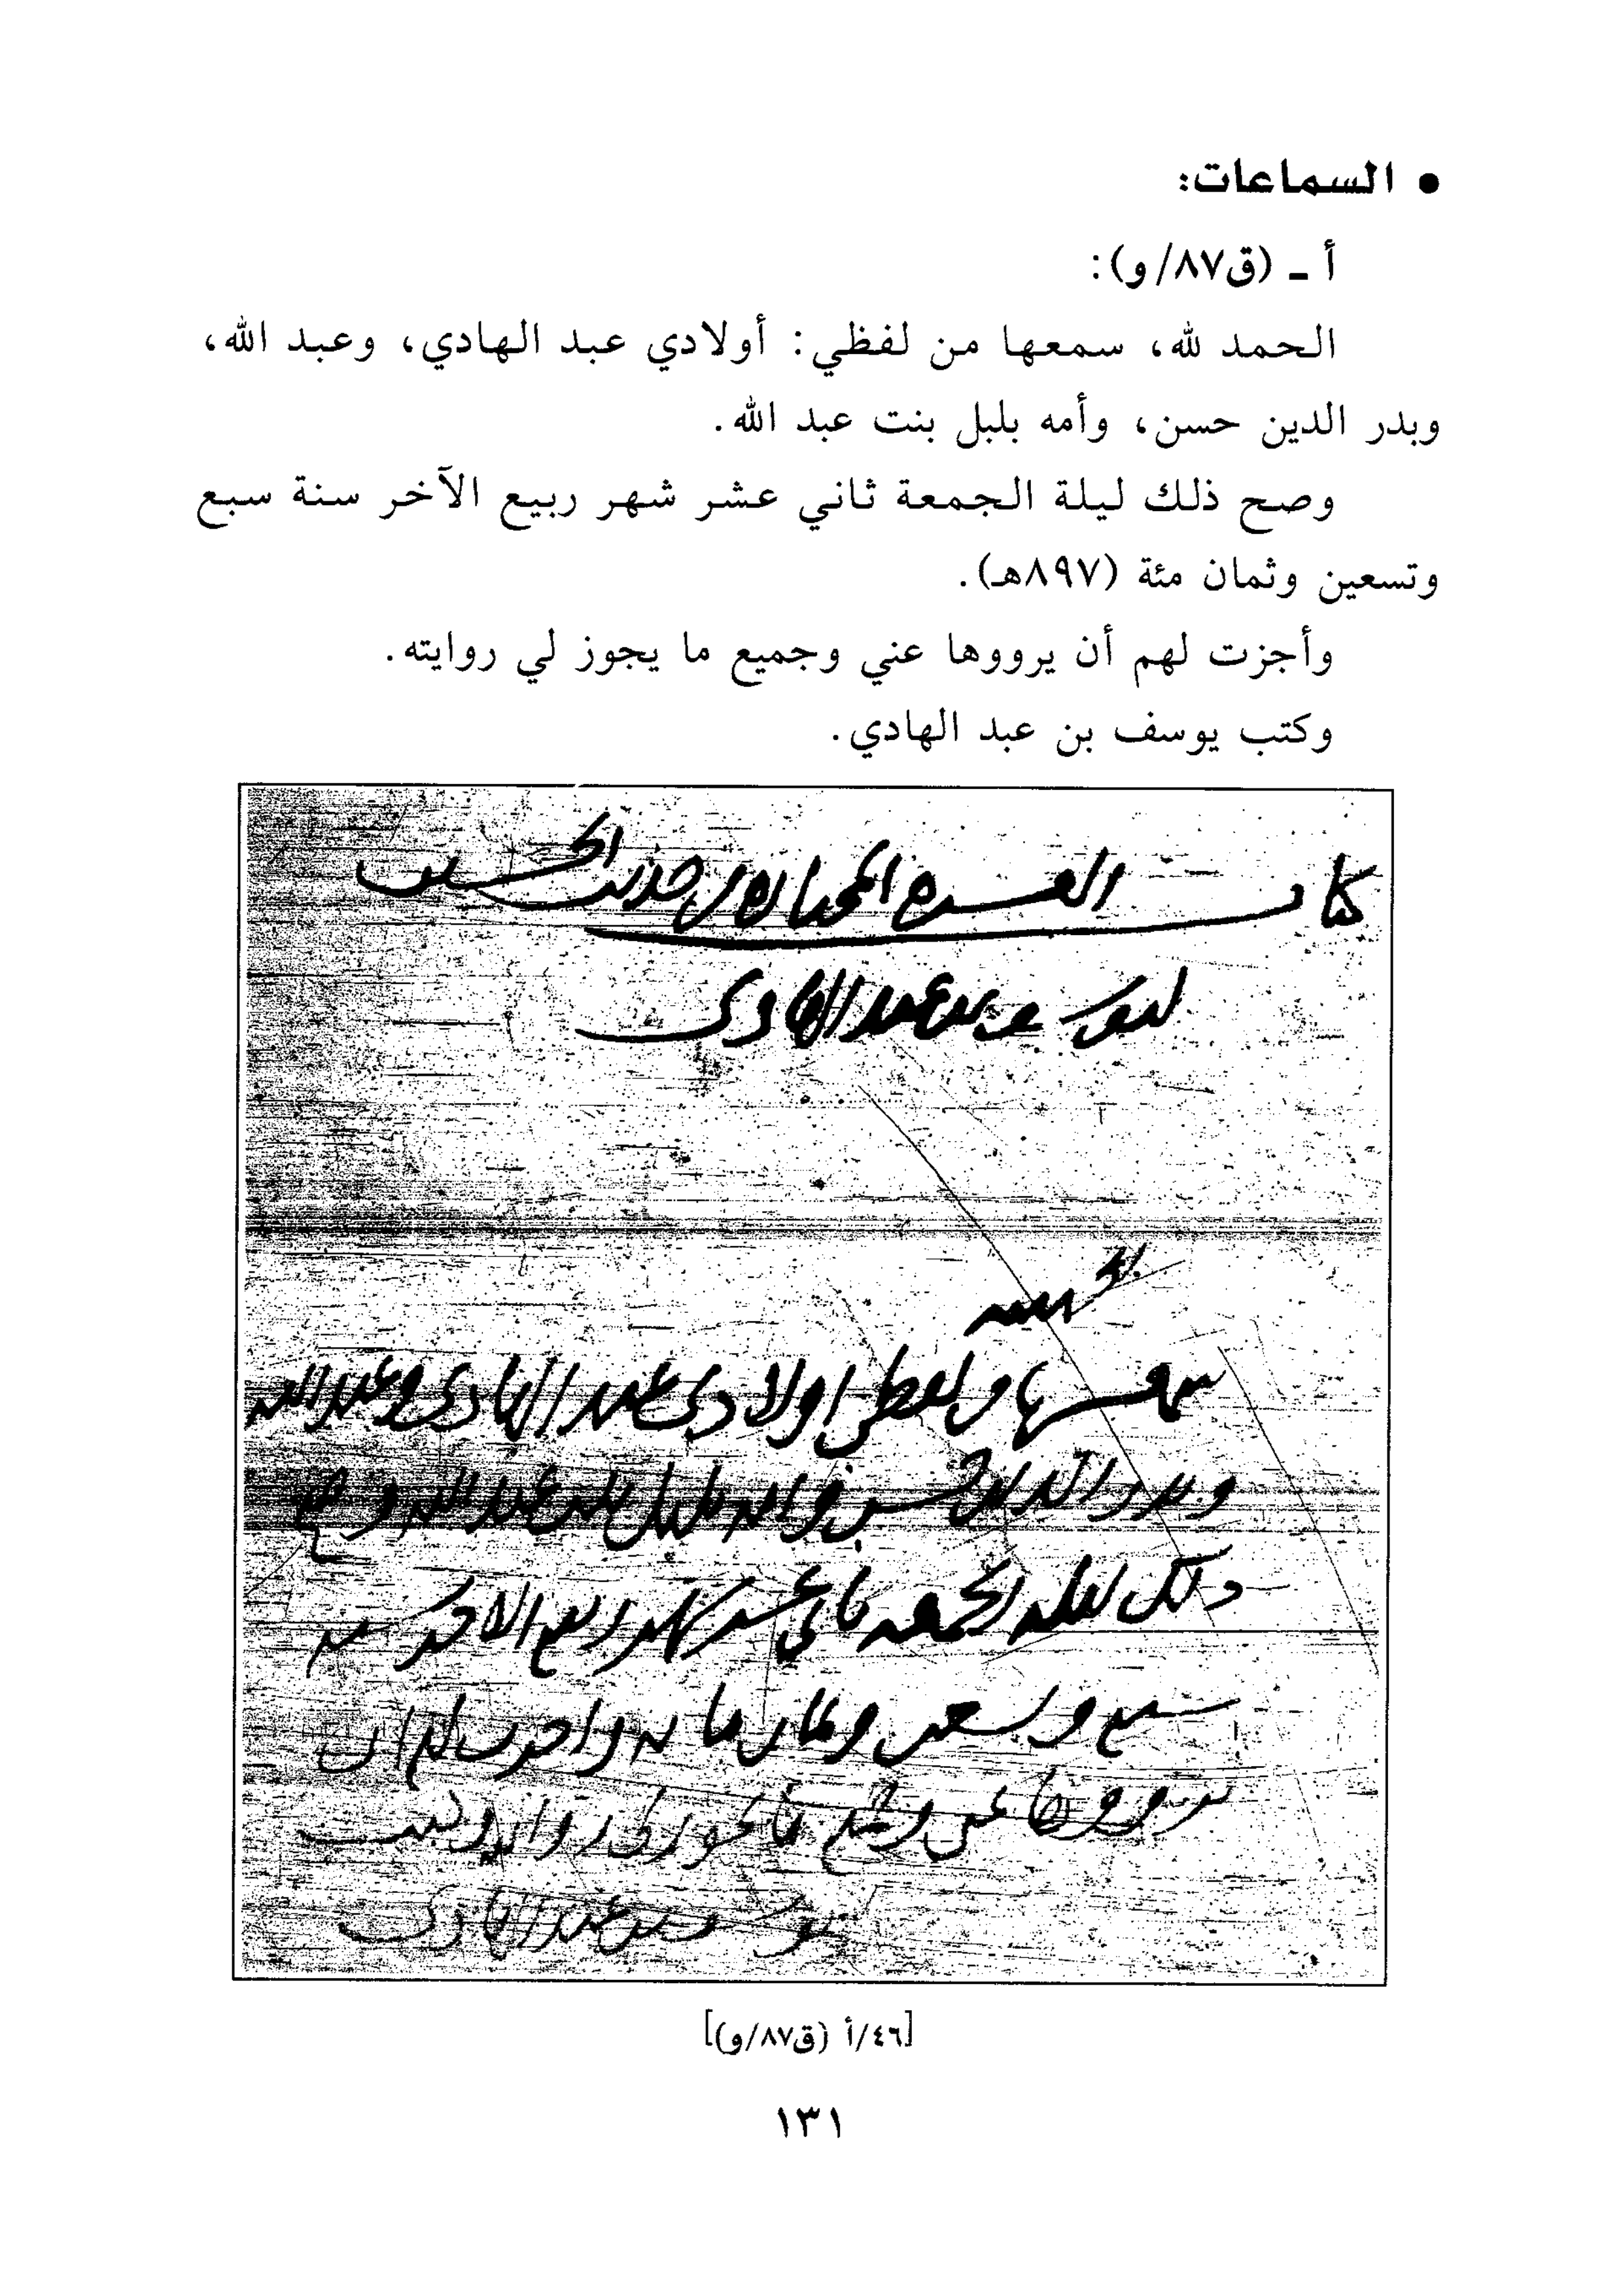 • السماعات:
أ ـ (ق٨٧/و):
الحمد لله، سمعها من لفظي: أولادي عبد الهادي، وعبد الله،
وبدر الدين حسن، وأمه بلبل بنت عبد الله.
وصح ذلك ليلة الجمعة ثاني عشر شهر ربيع الآخر سنة سبع
وتسعين وثمان مئة (٨٩٧هـ).
وأجزت لهم أن يرووها عني وجميع ما يجوز لي روايته.
وكتب يوسف بن عبد الهادي.
كتاب العشرة المختارة من حديث
ليوسف بن عبد الهادي
الحمد لله
سمعها من لفظي اولادي عبد الهادي وعبد الله
وبدر الدين حسن وامه بلبل بنت عبد الله وصح
ذلك ليلة الجمعة ثاني عشر شهر ربيع الاخر سنة
سبع وتسعين وثمان مائة واجزت لهم ان
يرووها عني وجميع ما يجوز لي روايته وكتب
يوسف بن عبد الهادي
[٤٦/أ (ق٨٧/و)]
١٣١